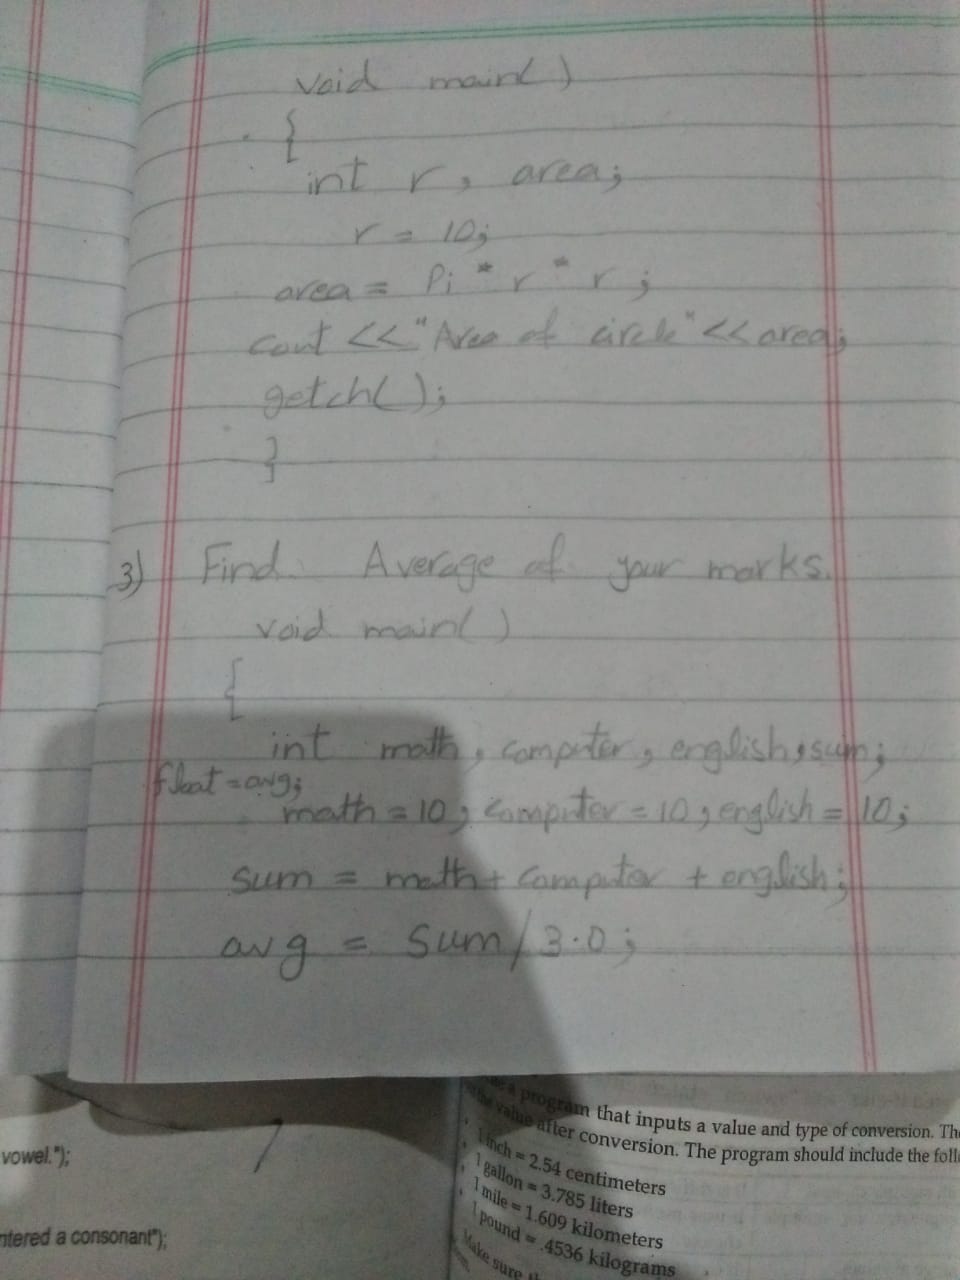 void main()
{
int r, area;
r = 10;
area = Pi * r * r;
cout << "Area of circle" << area;
getch();
}
3) Find Average of your marks.
void main()
{
int math, computer, english, sum;
float = avg;
math = 10; computer = 10; english = 10;
sum = math + computer + english;
avg = sum/3.0;
vowel.");
ntered a consonant");
a program that inputs a value and type of conversion. The
the value after conversion. The program should include the foll
1 inch = 2.54 centimeters
1 gallon = 3.785 liters
1 mile = 1.609 kilometers
1 pound = .4536 kilograms
Make sure